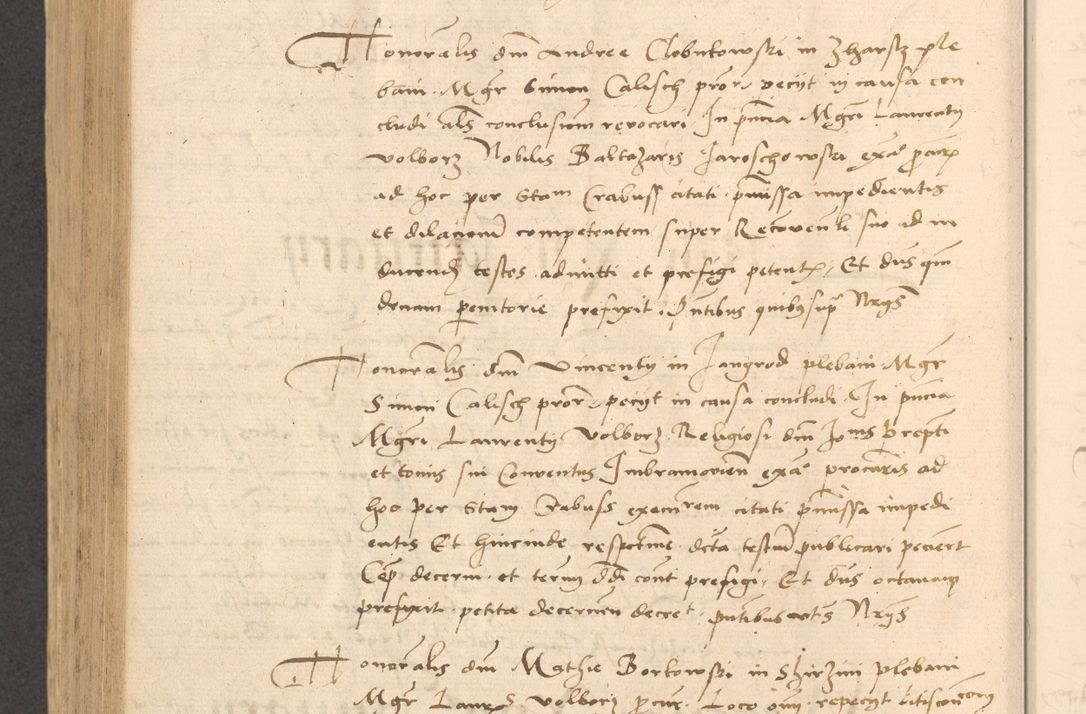 Honoralis dni Andree Clobutowski in Zharsz ple
bani Mgr Simon Calisch pror peciit in causa con
cludi als conclusion revocari In pncia Mgri Laurentii
Volborz Nobilis Baltazaris Jaroschowski exa procur
ad hoc per Stam Crabuss citati pmissa impedientis
et dilacionem competentem super Reconventi suo ad in
ducend testes admitti et prefigi petent Et dns quin
denam peremtorie prefixit Pntibus quibus supra Nrys
Honoralis dni Vincentii in Jangrod plebani Mgr
Simon Calisch pror peciit in causa concludi In pncia
Mgri Laurentii Volborz Religiosi dni Jois Prepti
et tocius sui Conventus Imbramovien exa procuris ad
hoc per Stam Crabuss executorem citati pmissa impedi
entis Et hincinde respective dicta testium publicari pecierunt
decerni et termin dd cont prefigi Et dns octavam
prefixit petita decernen decret pntibus actis Nrys
Honoralis dni Mathie Borkowski in Szirzini plebani
Mgr Laurs Volborz procur Loco oim repeciit